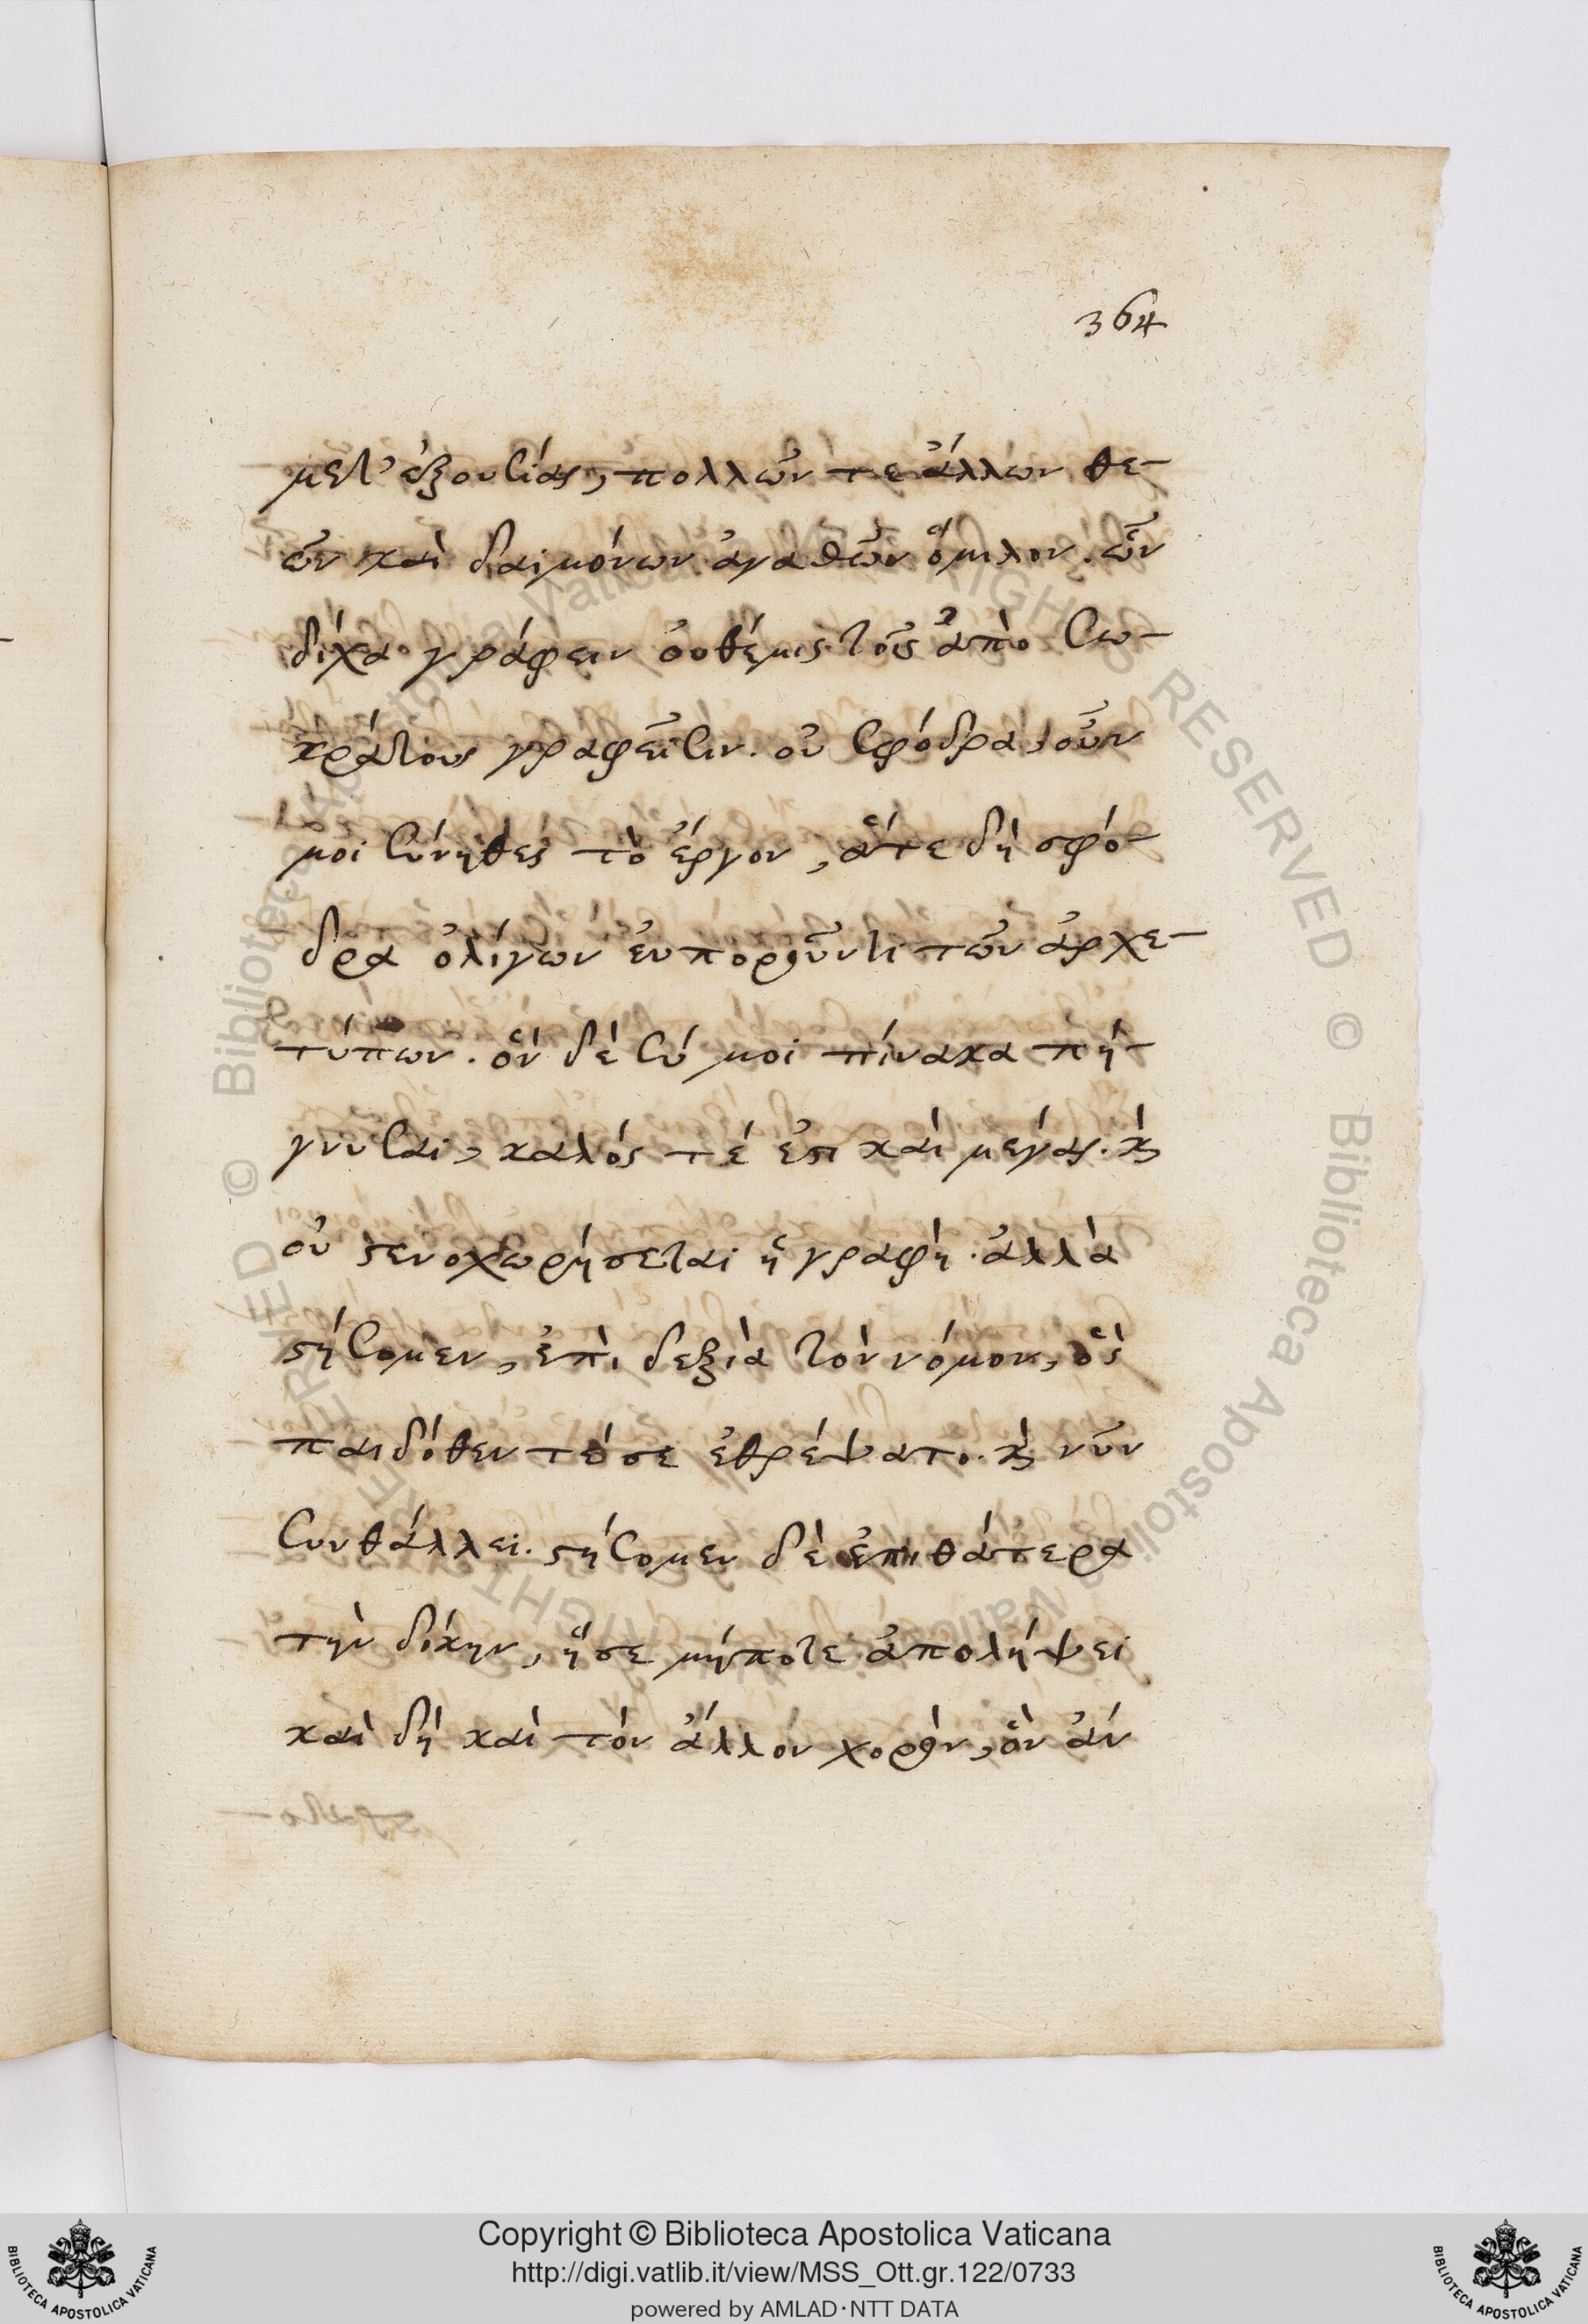 364
μετ' ἐξουσίας, πολλῶν τε ἄλλων θε-
ῶν καὶ δαιμόνων ἀγαθῶν ὅμιλον. ὧν
δίχα γράφειν οὐ θέμις τοῖς ἀπὸ Σω-
κράτους γραφεῦσιν. οὐ σφόδρα, οὖν
μοι σύνηθες τὸ ἔργον, ἅτε δὴ σφό-
δρα ὀλίγων εὐποροῦντι τῶν ἀρχε-
τύπων. ὃν δὲ σύ μοι πίνακα πή-
γνυσαι, καλός τέ ἐστι καὶ μέγας. καὶ
οὐ στενοχωρήσεται ἡ γραφή. ἀλλὰ
στήσομεν, ἐπὶ δεξιὰ τὸν νόμον, ὅς
παιδόθεν τέ σε ἐθρέψατο. καὶ νῦν
συνθάλλει. στήσομεν δὲ ἐπὶ θάτερα
τὴν δίκην, ἥ σε μήποτε ἀπολήψει
καὶ δὴ καὶ τὸν ἄλλον χορὸν, ὃν ἂν
Copyright © Biblioteca Apostolica Vaticana
http://digi.vatlib.it/view/MSS_Ott.gr.122/0733
powered by AMLAD·NTT DATA
BIBLIOTECA APOSTOLICA VATICANA
BIBLIOTECA APOSTOLICA VATICANA